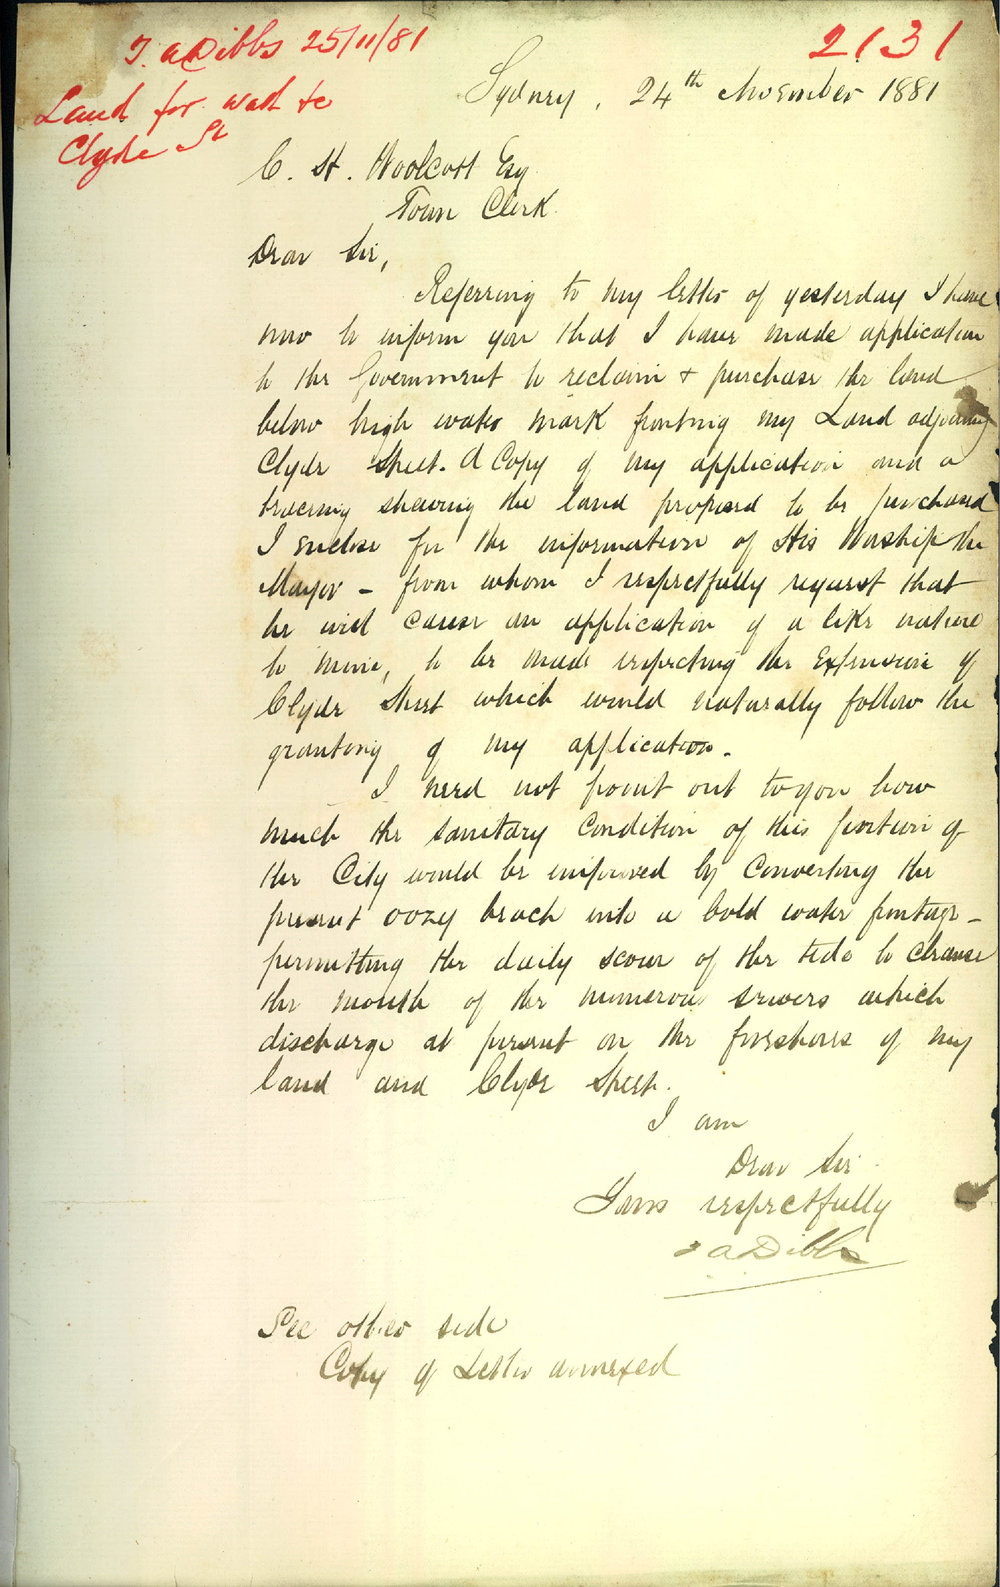 T. A Dibbs 25/11/81
2131
Land for wall &c
Clyde St
Sydney, 24th November 1881
C. H. Woolcott Esq
Town Clerk
Dear Sir,
Referring to my letter of yesterday I have
now to inform you that I have made application
to the Government to reclaim & purchase the land
below high water mark fronting my Land adjoining
Clyde Street. A Copy of my application and a
tracing shewing the land proposed to be purchased
I enclose for the information of His Worship the
Mayor - from whom I respectfully request that
he will cause an application of a like nature
to mine, to be made respecting the Extension of
Clyde Street which would naturally follow the
granting of my application.
I need not point out to you how
much the sanitary condition of this portion of
the City would be improved by converting the
present oozy beach into a bold water frontage -
permitting the daily scour of the tide to cleanse
the mouth of the numerous sewers which
discharge at present on the foreshores of my
land and Clyde Street.
I am
Dear Sir
Yours respectfully
T A Dibbs
See other side
Copy of Letter annexed